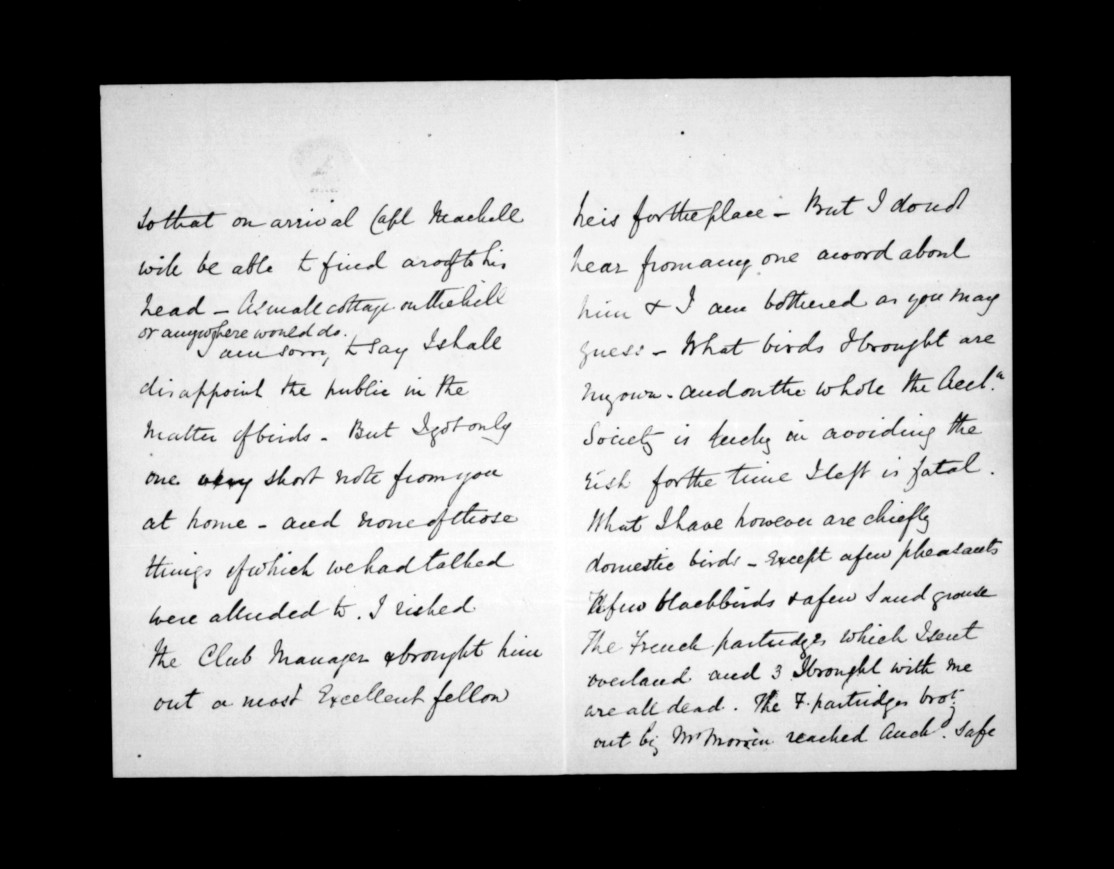 so that on arrival Capt Machell
will be able to find a roof to his
head – A small cottage on the hill
or anywhere would do.
I am sorry to say I shall
disappoint the public in the
matter of birds – But I got only
one very short note from you
at home – and none of those
things of which we had talked
were alluded to. I risked
the Club Manager & brought him
out a most Excellent fellow
he is for the place – But I do not
hear from any one a word about
him & I am bothered as you may
guess – What birds I brought are
my own – and on the whole the Accl.n
Society is lucky in avoiding the
risk for the time I left is fatal.
What I have however are chiefly
domestic birds – Except a few pheasants
A few blackbirds & a few Sand grouse
The French partridges which I sent
overland and 3 I brought with me
are all dead. The F. partridges brot.
out by Mr Morrin reached Auckd. safe